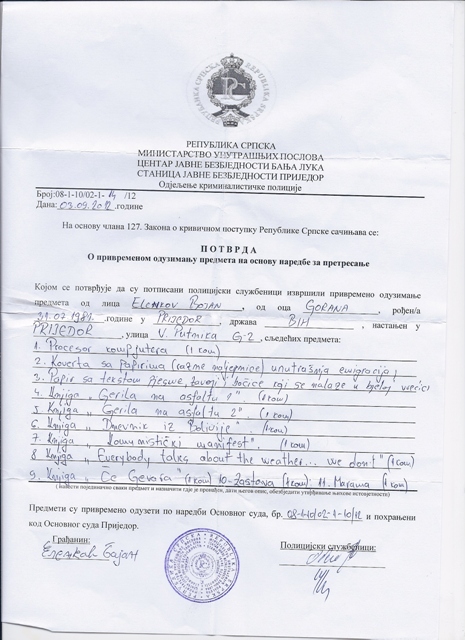 РЕПУБЛИКА СРПСКА
МИНИСТАРСТВО УНУТРАШЊИХ ПОСЛОВА
ЦЕНТАР ЈАВНЕ БЕЗБЈЕДНОСТИ БАЊА ЛУКА
СТАНИЦА ЈАВНЕ БЕЗБЈЕДНОСТИ ПРИЈЕДОР
Одјељење криминалистичке полиције
Број:08-1-10/02-1- /12
Дана: 03.09.2012 .године
На основу члана 127. Закона о кривичном поступку Републике Српске сачињава се:
П О Т В Р Д А
О привременом одузимању предмета на основу наредбе за претресање
Којом се потврђује да су потписани полицијски службеници извршили привремено одузимање
предмета од лица Elenkov Bojan, од оца GORANA, рођен/а
31.07.1981. године у PRIJEDOR, држава BIH, настањен у
PRIJEDOR, улица V. Putnika G-2, сљедећих предмета:
1. Procesor kompjutera (1 kom)
2. Koverta sa papirima (razne naljepnice) unutrašnja emigracija;
3. Papir sa tekstom pjesme, zavoji, bočice koji se nalaze u bijeloj vrećici
4. Knjiga „Gerila na asfaltu 1" (1 kom)
5. Knjiga „Gerila na asfaltu 2" (1 kom)
6. Knjiga „Dnevnik iz Bolivije". (1 kom)
7. Knjiga „Komunistički manifest". (1 kom)
8 Knjiga „Everybody talks about the weather... we don't" (1 kom)
9. Knjiga „Če Gevara" (1 kom) 10-zastava (1 kom). 11. Marama (1 kom)
( навести појединачно сваки предмет и назначити гдје је пронађен, дати његов опис, обезбједити утврђивање његове истовјетности)
Предмети су привремено одузети по наредби Основног суда, бр. 08-1-10/02-1-10/12 и похрањени
код Основног суда Приједор.
Грађанин:
Полицијски службеници:
Еленков Бојан